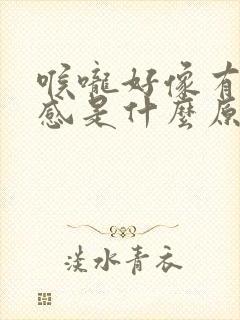 喉嚨好像有
感是什麼原
淡水青衣